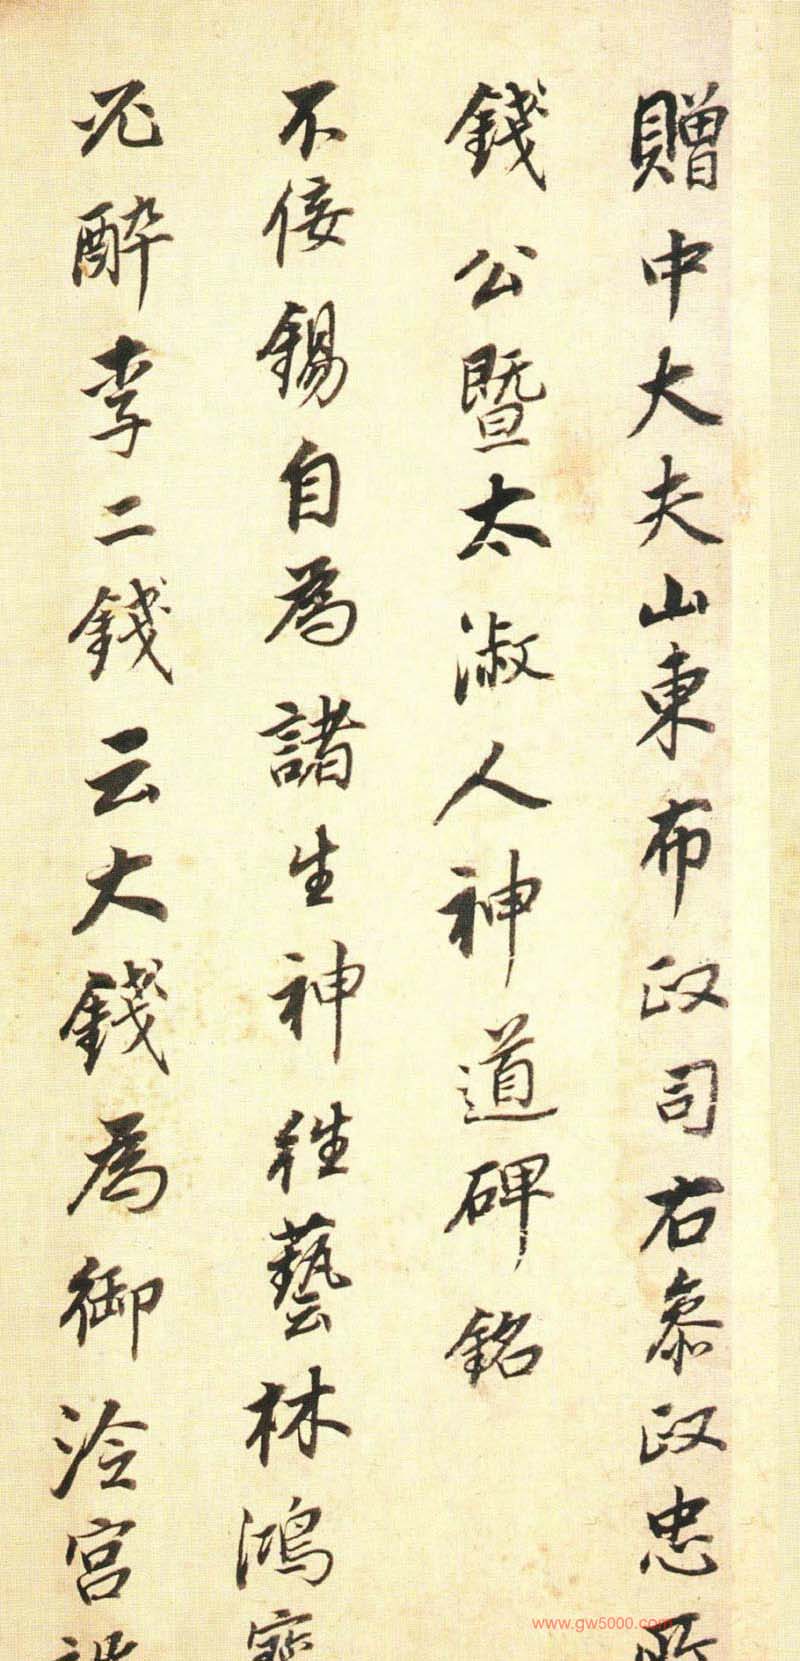 贈中大夫山東布政司右叅政忠所
錢公暨太淑人神道碑銘
不佞錫自為諸生神往藝林鴻寶
必醉李二錢云大錢為御泠宮
www.gw5000.com